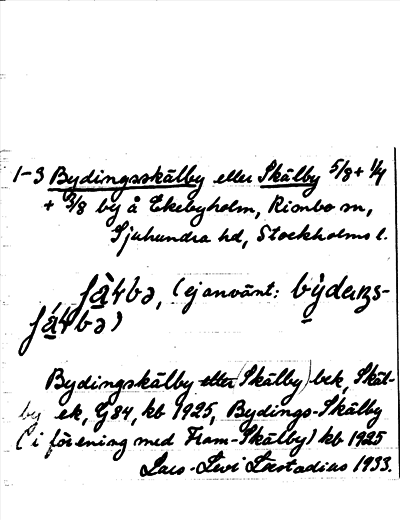 1-3 Bydingsskälby eller Skälby 5/8 + 1/4
+ 3/8 by å Ekebyholm, Rimbo sn,
Sjuhundra hd, Stockholms l.
(ej använt:
Bydingskälby eller (Skälby) bek, Skäl-
by ek, G84, kb 1925, Bydings-Skälby
(i förening med Fram-Skälby) kb 1925
Lars-Levi Læstadius 1933.